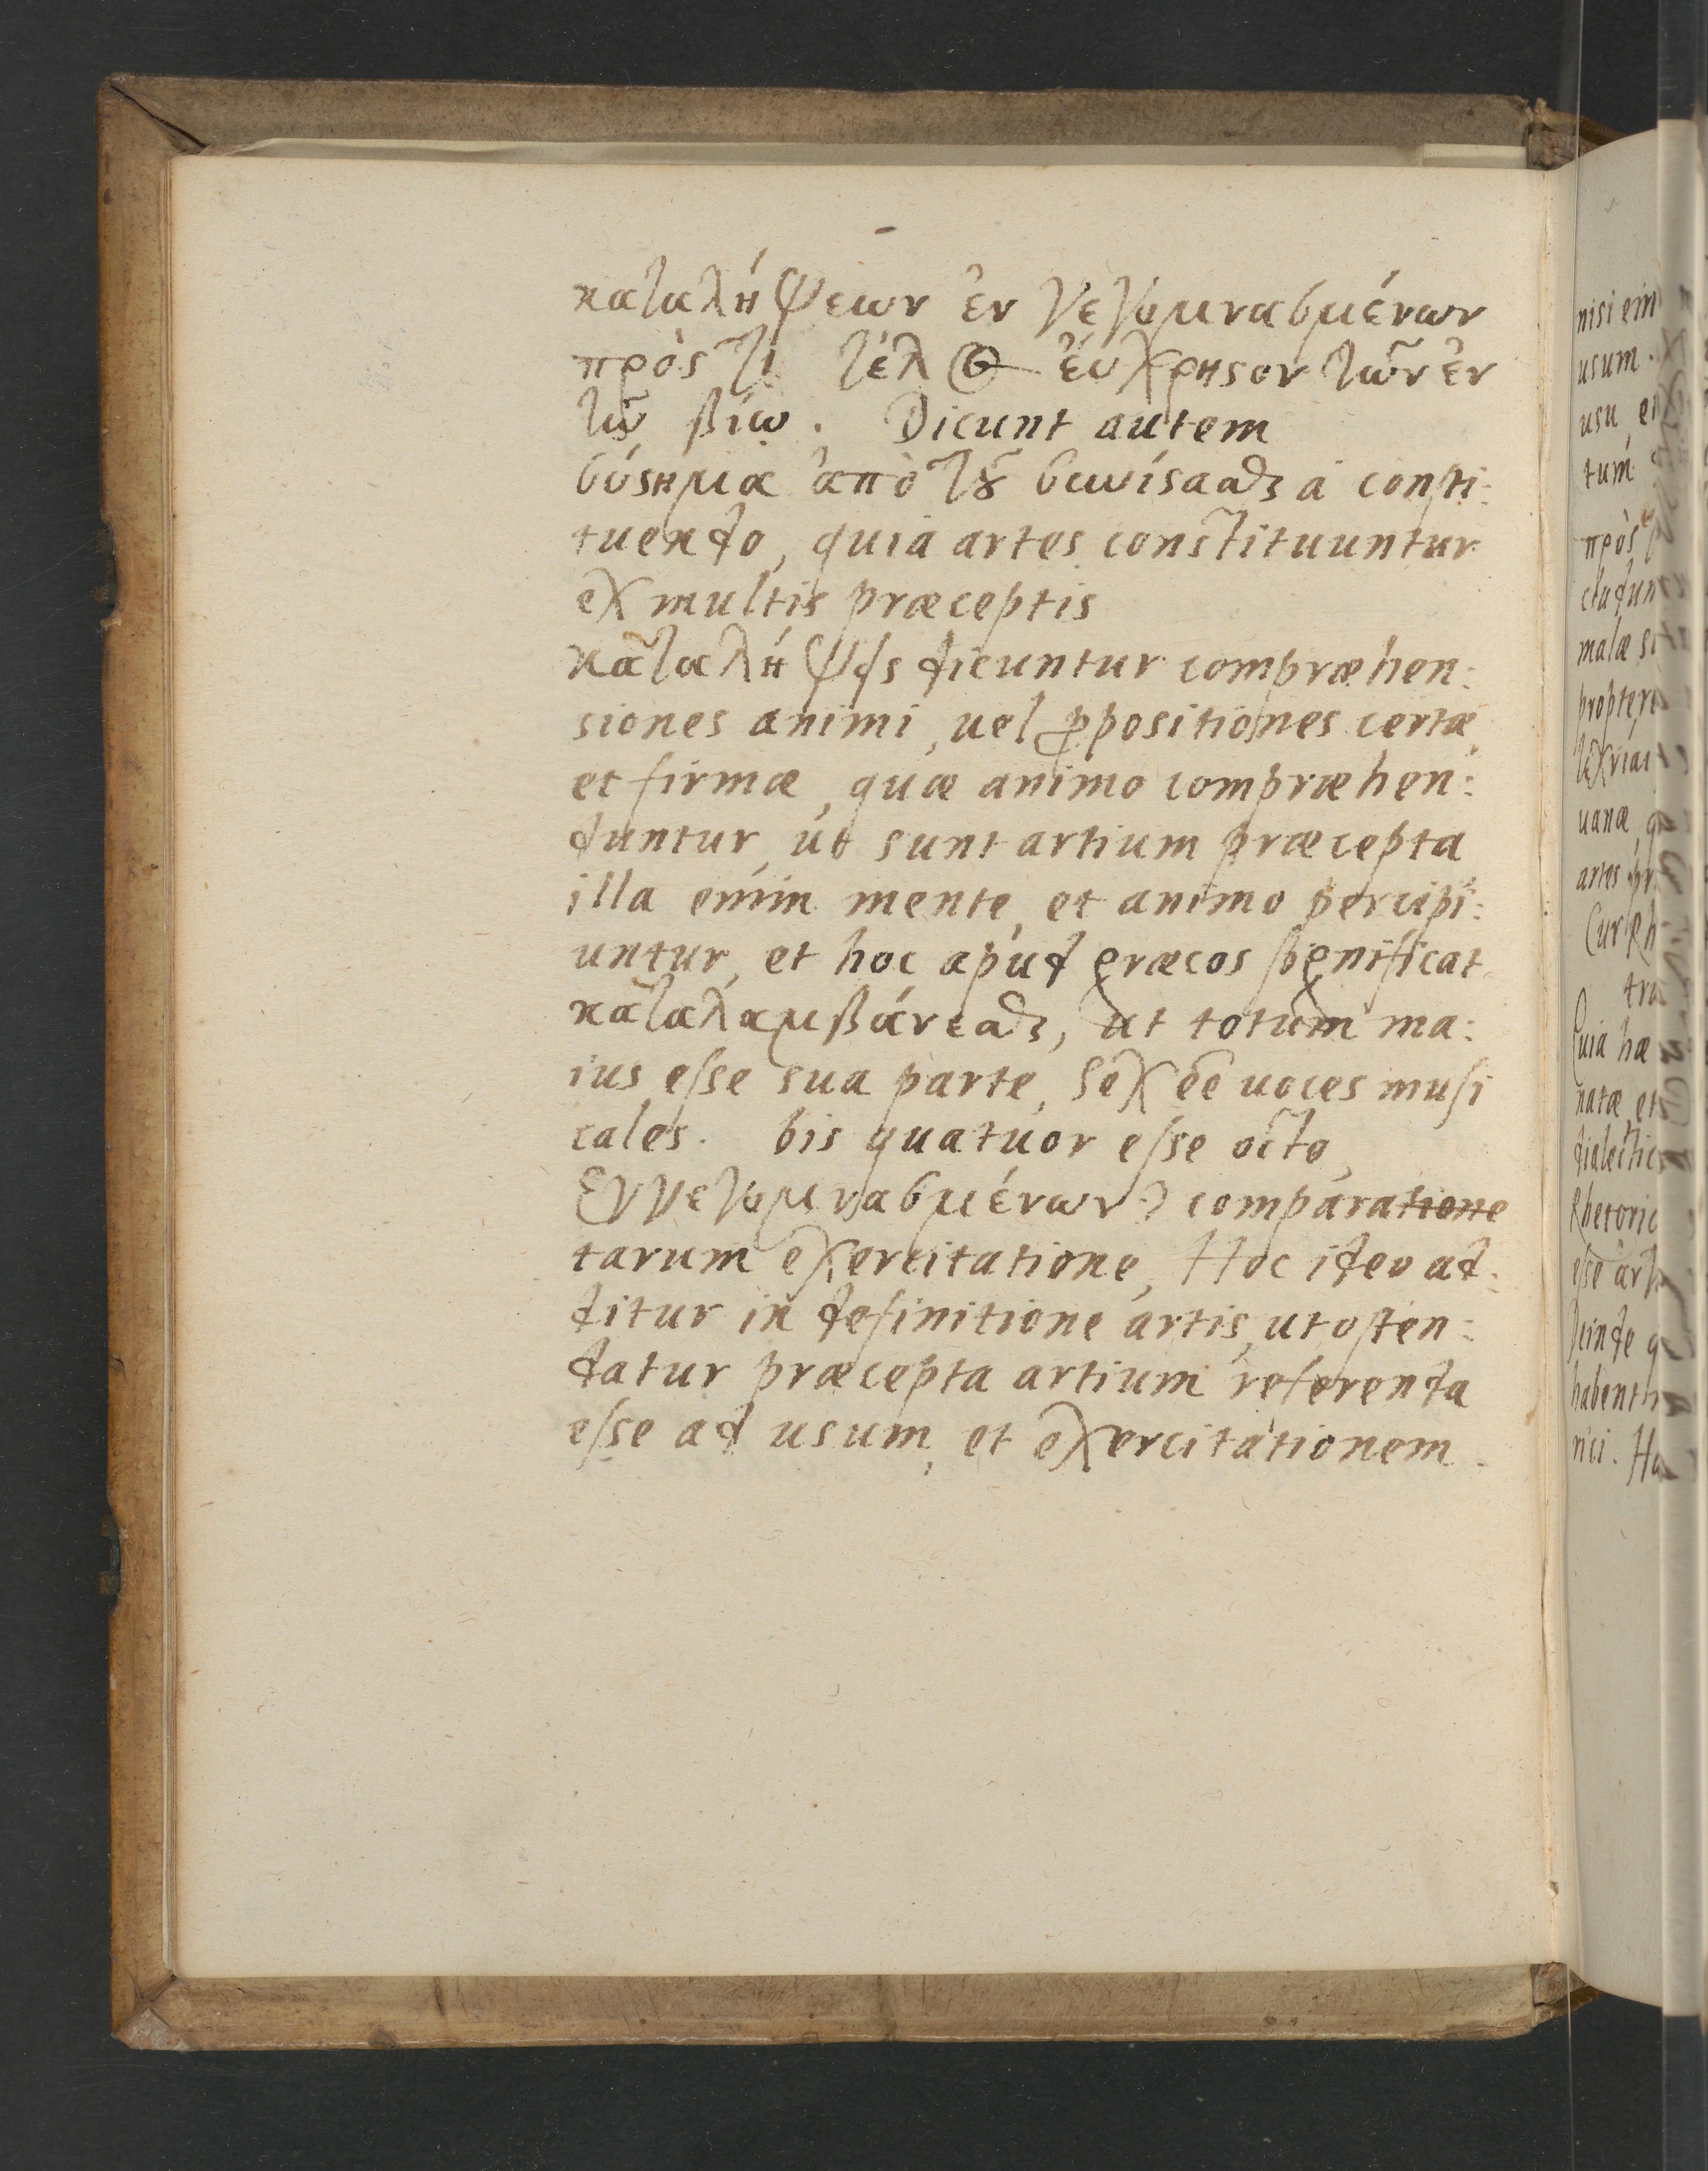 καταλήψεων ἐν γεγυμνασμένων
πρός τι τέλος ἐύχρηστον τῶν ἐν
τῷ βίῳ. Dicunt autem
σύστημα ἀπὸ τοῦ συνίστασθαι à consti:
tuendo, quia artes constituuntur
ex multis præceptis
καταλήψεις dicuntur compræhen:
siones animi, uel ꝓpositiones certæ,
et firmæ, quæ animo compræhen:
duntur, ut sunt artium præcepta
illa enim mente, et animo percipi:
untur, et hoc apud græcos significat
καταλαμβάνεσθαι, ut totum ma:
ius esse sua parte, Sex eē uoces musi
cales. bis quatuor esse octo,
Ἐνγεγυμνασμένων) comparatione
tarum exercitatione, Hoc ideo ad:
ditur in definitione artis, ut osten:
datur præcepta artium referenda
esse ad usum, et exercitationem.
nisi
usum.
usu
tum
πρὸς
malæ
uanæ
artes
Quia hæ
natæ et
dialectic
Rhetoric
esse
Deinde q
habent
rici. Ha